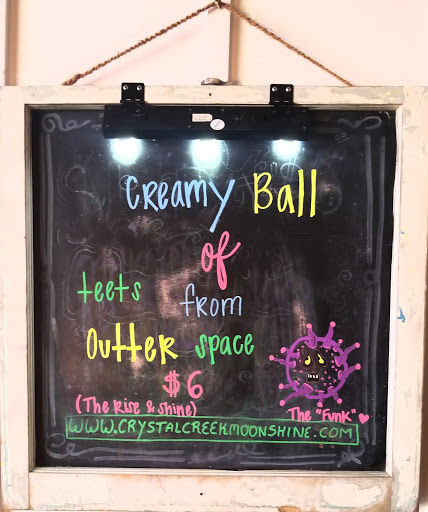 Creamy Ball
of
teets from
Outter space
$6
(The Rise & Shine)
The "Funk"
WWW.CRYSTALCREEKMOONSHINE.COM